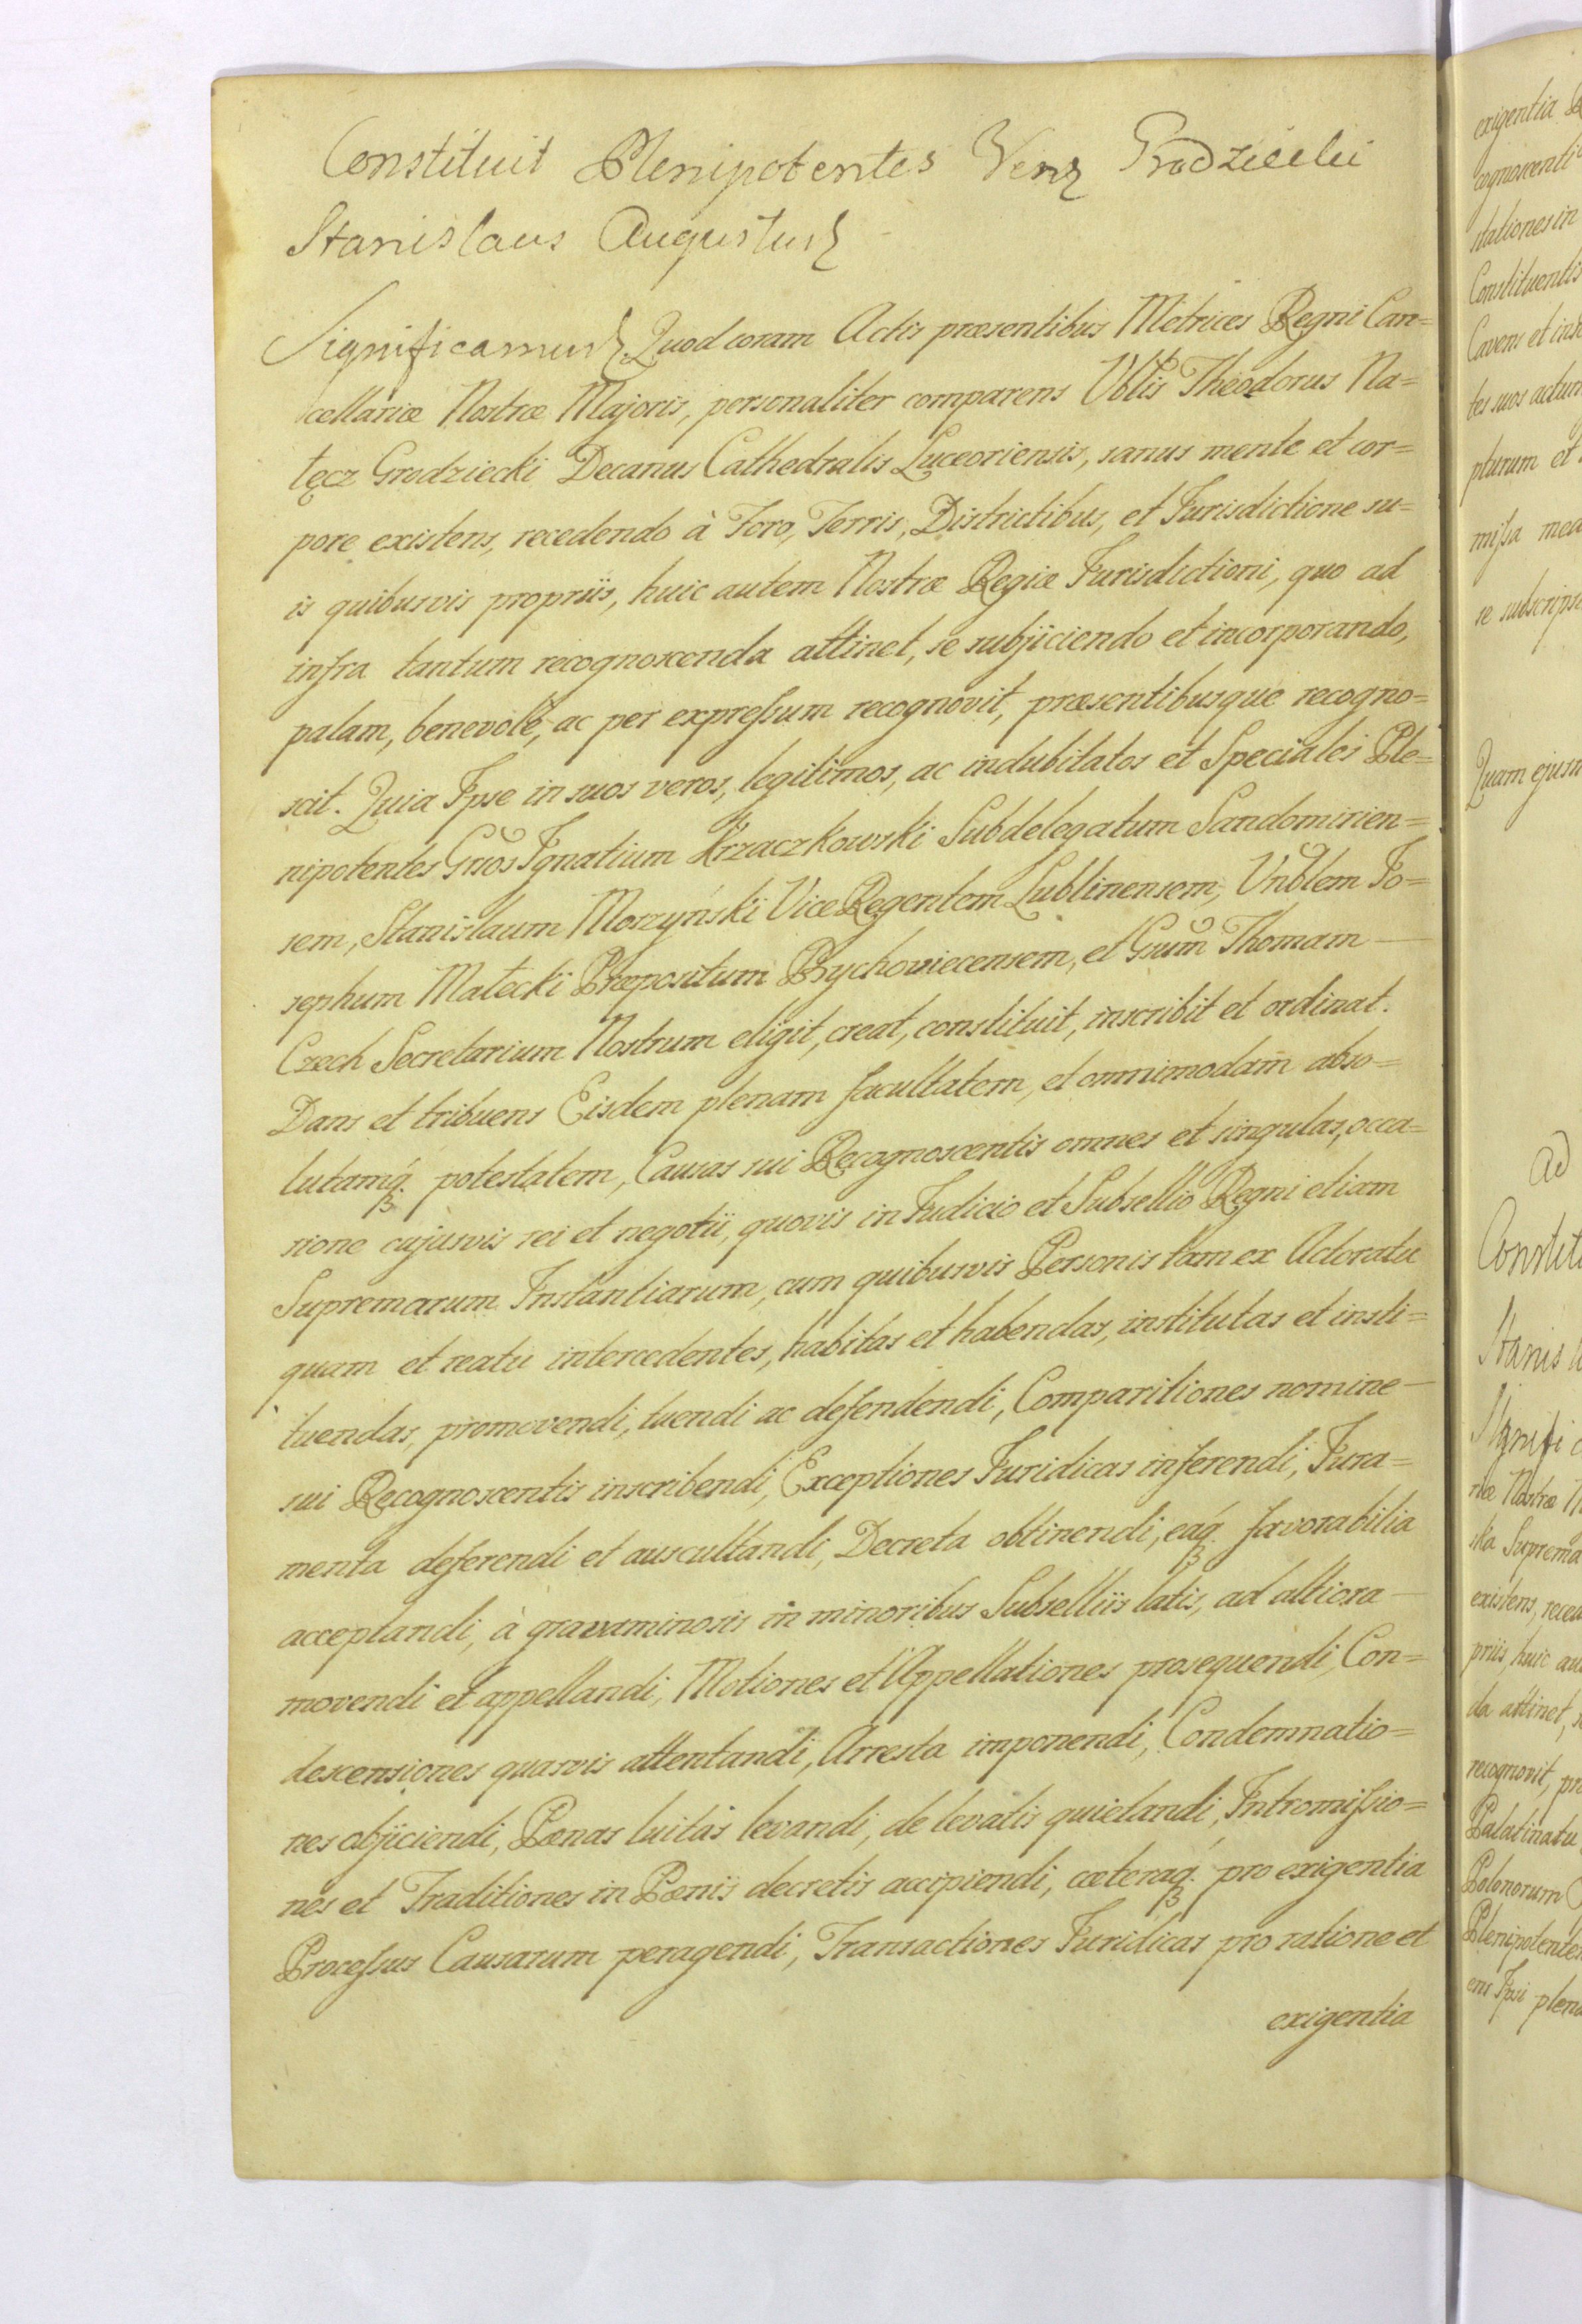 Constituit Plenipotentes Venz Grodziecki
Stanislaus Augustus
Significamus Quod coram Actis præsentibus Metrices Regni Can=
cellariæ Nostræ Majoris, personaliter comparens Vblis Theodorus Na=
łęcz Grodziecki Decanus Cathedralis Luceoriensis, sanus mente et cor=
pore existens, recedendo à Foro, Terris, Districtibus, et Jurisdictione su=
is quibusvis propriis, huic autem Nostræ Regiæ Jurisdictioni, quo ad
infra tantum recognoscenda attinet, se subjiciendo et incorporando,
palam, benevolè, ac per expressum recognovit, præsentibusque recogno=
scit. Quia Ipse in suos veros, legitimos, ac indubitatos et Speciales Ple=
nipotentes Gños Ignatium Krzaczkowski Subdelegatum Sandomirien=
sem, Stanislaum Moszyński Vice Regentem Lublinensem, Vnblem Jo=
sephum Małecki Præpositum Bychoviecensem, et Gnum Thomam —
Czech Secretarium Nostrum eligit, creat, constituit, inscribit et ordinat.
Dans et tribuens Eisdem plenam facultatem, et omnimodam abso=
lutamq́ʒ potestatem, Causas sui Recognoscentis omnes et singulas, occa=
sione cujusvis rei et negotii, quovis in Judicio et Subsellio Regni etiam
Supremarum Instantiarum, cum quibusvis Personis tam ex Actoratu
quam et reatu intercedentes, habitas et habendas, institutas et insti=
tuendas, promovendi, tuendi ac defendendi, Comparitiones nomine —
sui Recognoscentis inscribendi, Exceptiones Juridicas inferendi, Jura=
menta deferendi et auscultandi, Decreta obtinendi, eaq́ʒ favorabilia
acceptandi, à gravaminosis in minoribus Subselliis latis, ad altiora —
movendi et appellandi, Motiones et Appellationes prosequendi, Con=
descensiones quasvis attentandi, Arresta imponendi, Condemnatio=
nes objiciendi, Pœnas luitas levandi, de levatis quietandi, Intromissio=
nes et Traditiones in Pœnis decretis accipiendi, cæteraq́ʒ pro exigentia
Processus Causarum peragendi, Transactiones Juridicas pro ratione et
exigentia
exigentia
cognoscenti
Constituentis
Cavens et
tes suos
pturum et
missa
se
Quam
ad
Stanis
Signifi
riæ Nostræ
ska Suprema
existens,
priis, huic
da attinet,
recognovit,
Palatinatu
Polonorum
Plenipotenten
ens Ipsi